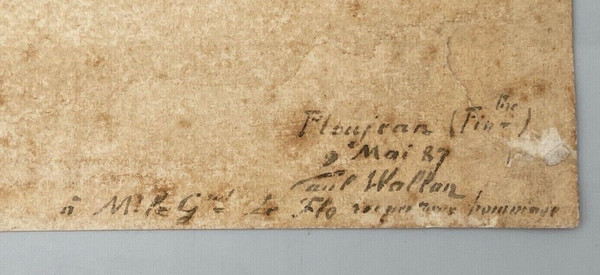 Ploujean (Fin^tre)
9 Mai 87
Paul Wallon
à Mr le G^ral Le Flo respectueux hommage